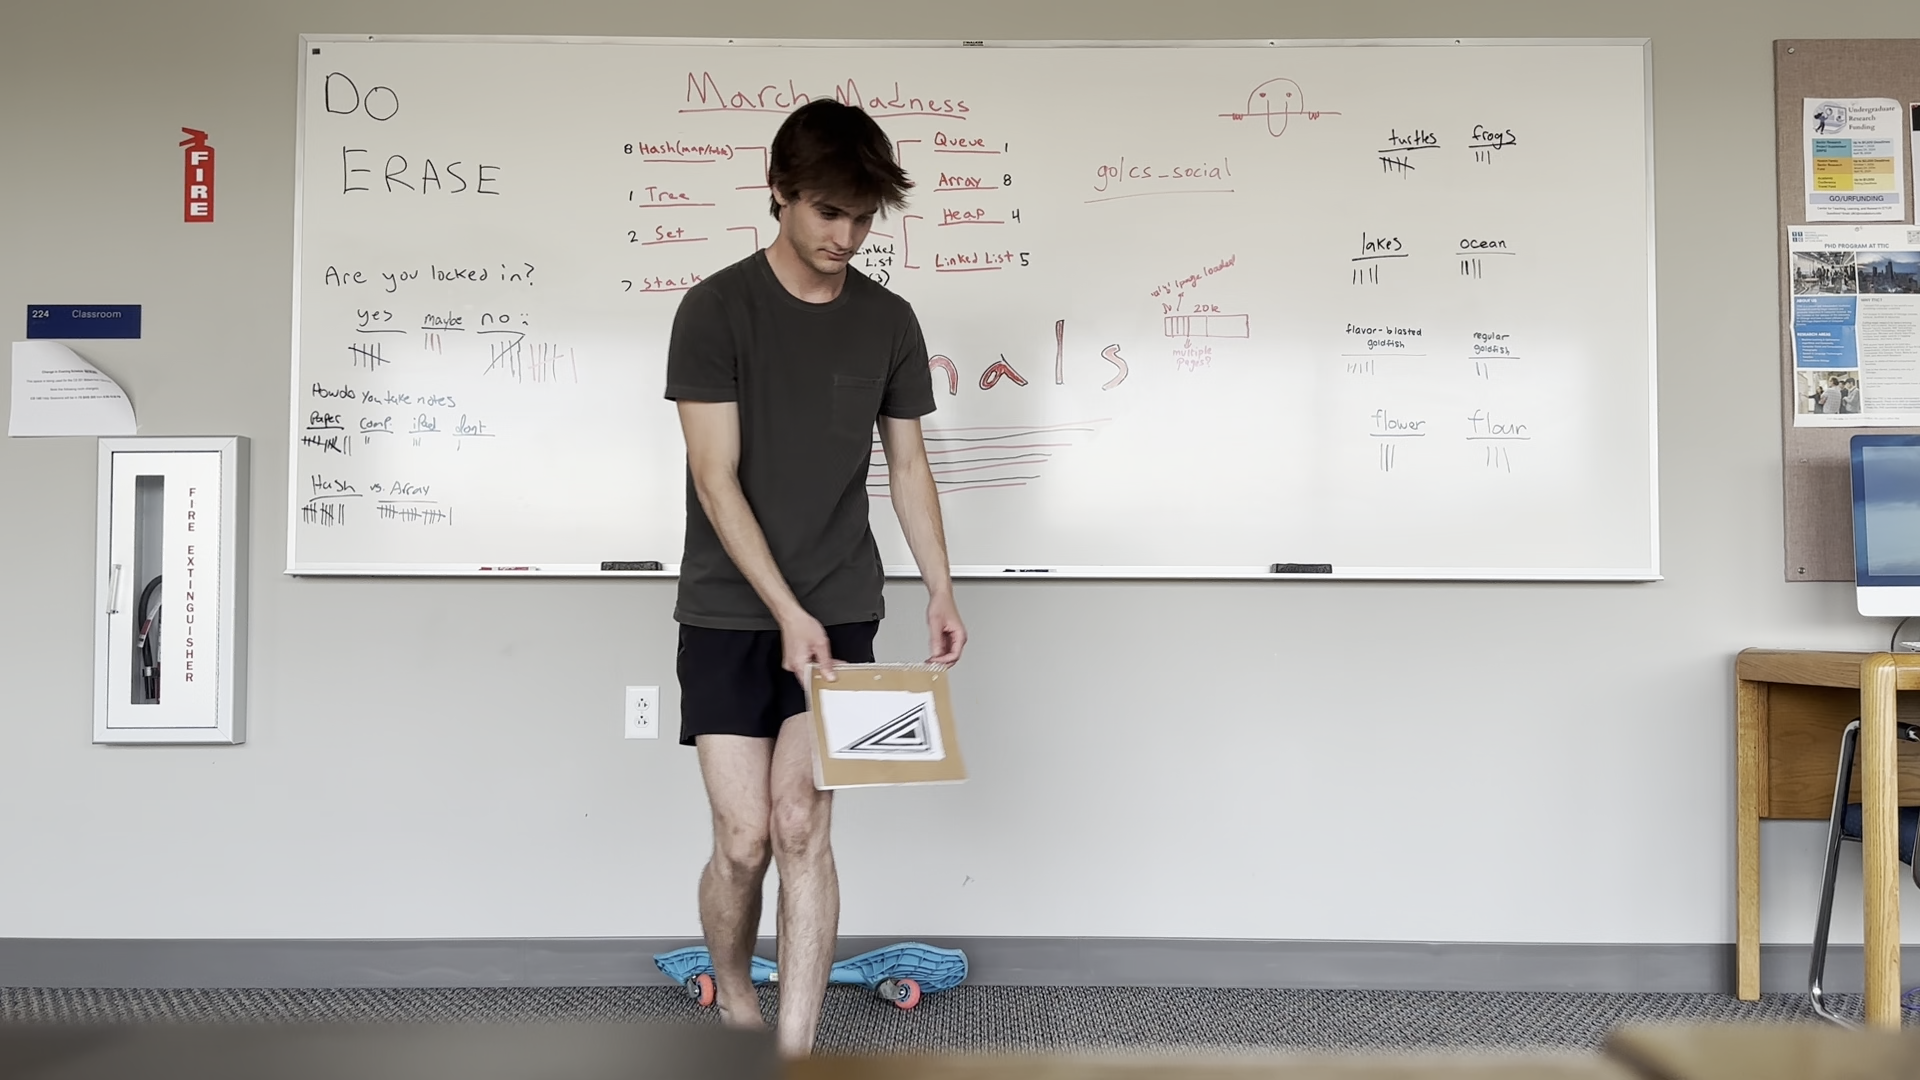 DO
ERASE
FIRE
224 Classroom
FIRE EXTINGUISHER
Are you locked in?
yes maybe no :
How do you take notes
Paper comp. iPad dont
Hash vs. Array
March Madness
8 Hash(map/table)
1 Tree
2 Set
7 Stack
Queue 1
Array 8
Heap 4
Linked List 5
Linked
List
nals
go/cs_social
(page loaded)
20k
multiple
pages?
turtles frogs
lakes ocean
flavor-blasted
goldfish
regular
goldfish
flower flour
Undergraduate
Research
Funding
GO/URFUNDING
PHD PROGRAM AT TTIC
ABOUT US
WHY TTIC?
RESEARCH AREAS